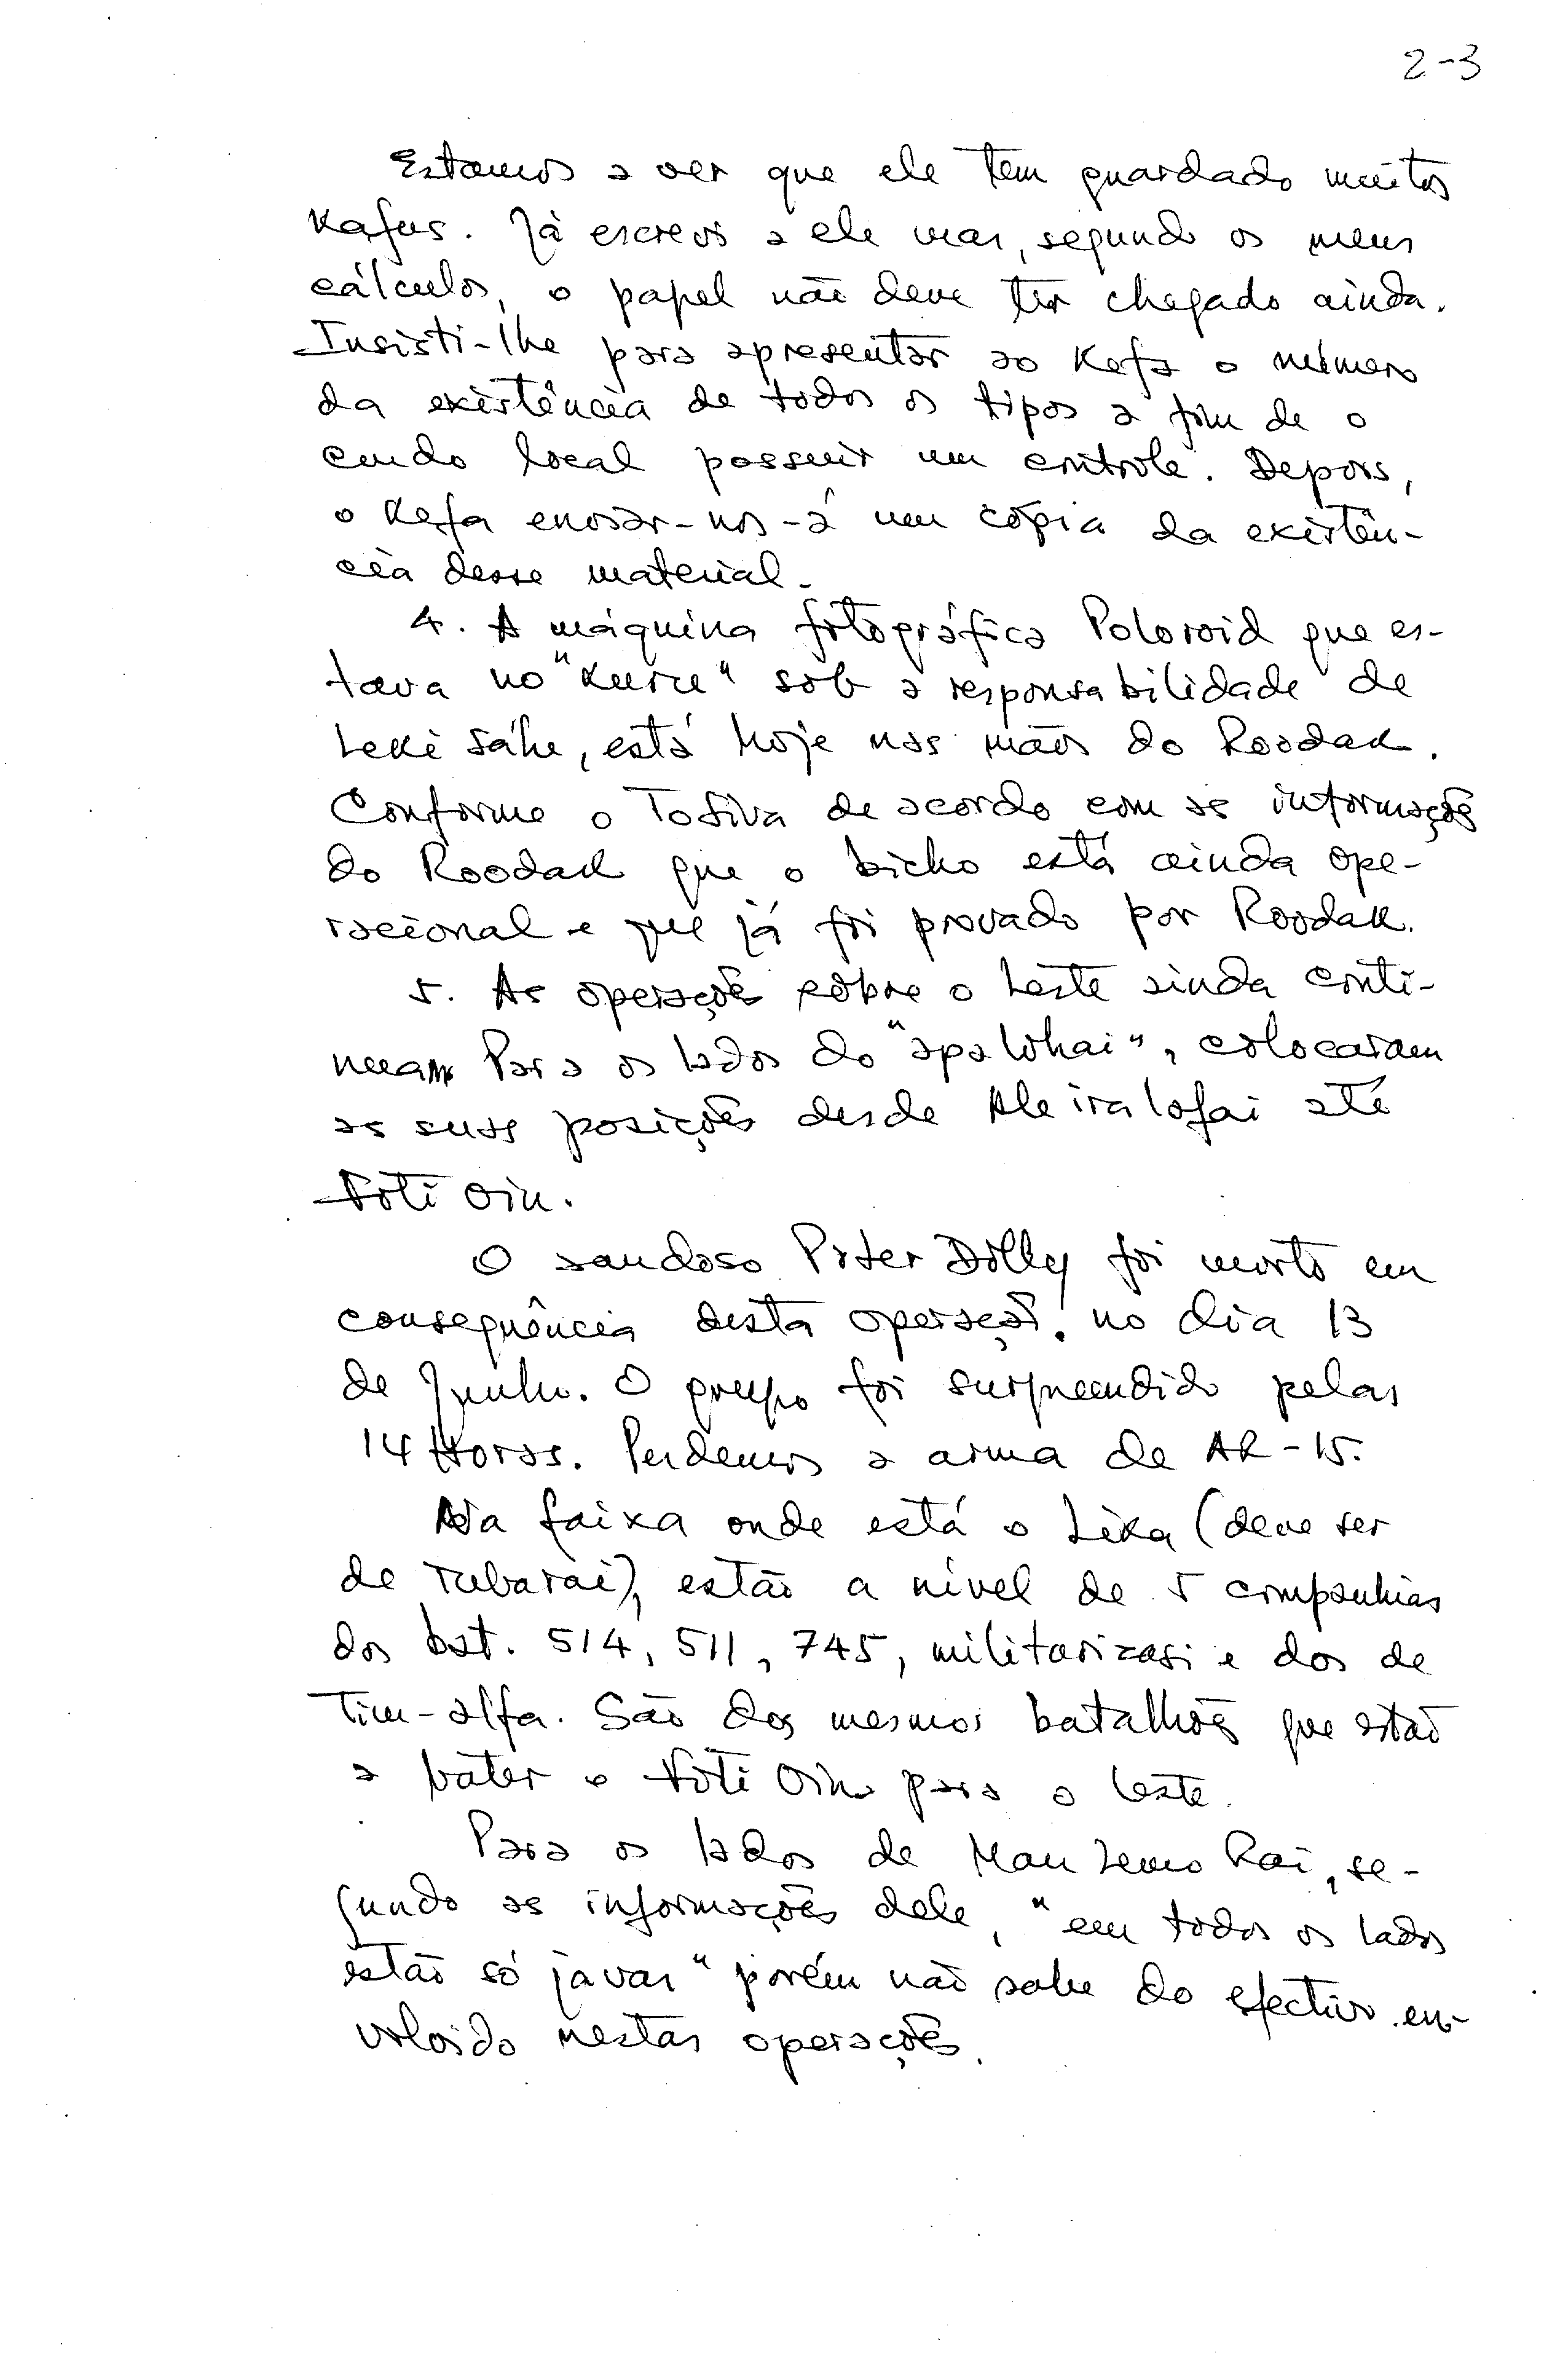 2-3
Estamos a ver que ele tem guardado muitos
Kafus. Já escrevi a ele mas, segundo os meus
cálculos, o papel não deve ter chegado ainda.
Insisti-lhe para apresentar ao Kefa o número
da existência de todos os tipos a fim de o
cmdo local possuir um controle. Depois,
o Kefa enviar-nos-á um cópia da existên-
cia desse material.
4. A máquina fotográfica Poloroid que es-
tava no "Kuru" sob a responsabilidade de
Leki Sáhe, está hoje nas mãos do Roodak.
Conforme o Tofiva de acordo com as informações
do Roodak que o bicho está ainda ope-
racional e que já foi provado por Roodak.
5. As operações sobre o Leste ainda conti-
nuam Para os lados do "apalohai", colocaram
as suas posições desde Aleiralofai até
Noti Oin.
O saudoso Piter Dolly foi morto em
consequência desta operação, no dia 13
de Junho. O grupo foi surpreendido pelas
14 Horas. Perdemos a arma de AR-15.
Na faixa onde está o Lika (deve ser
de Tubarai), estão a nível de 5 companhias
dos bat. 514, 511, 745, militarizasi e dos de
Tim-alfa. São dos mesmos batalhões que estão
a bater o Noti Oin para o leste.
Para os lados de Mau Lemo Rai, se-
gundo as informações dele, "em todos os lados
estão só javas" porém não sabe do efectivo en-
volvido nestas operações.